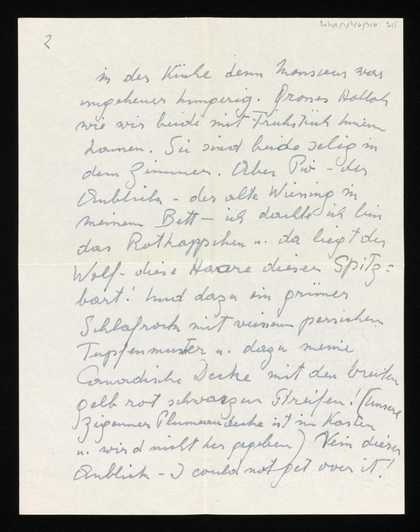 2
in der Küche denn Monsieur war
ungeheuer hungerig. Groses Halloh
wie wir beide mit Frühstück hinein
kamen. Sie sind beide selig in
dem Zimmer. Aber Pio - der
Anblick - der alte Wiesing in
meinem Bett - ich dachte ich bin
das Rotkäppchen u. da liegt der
Wolf - diese Haare dieser Spitz=
bart! Und dazu ein grüner
Schlafrock mit weissem persischen
Tupfenmuster u. dazu meine
Canadische Decke mit den breiten
gelb rot schwarzen Streifen! (unsere
Zigeuner Plumeaudecke ist im Kasten
u. wird nicht her gegeben) Nein dieser
Anblick - I could not get over it!